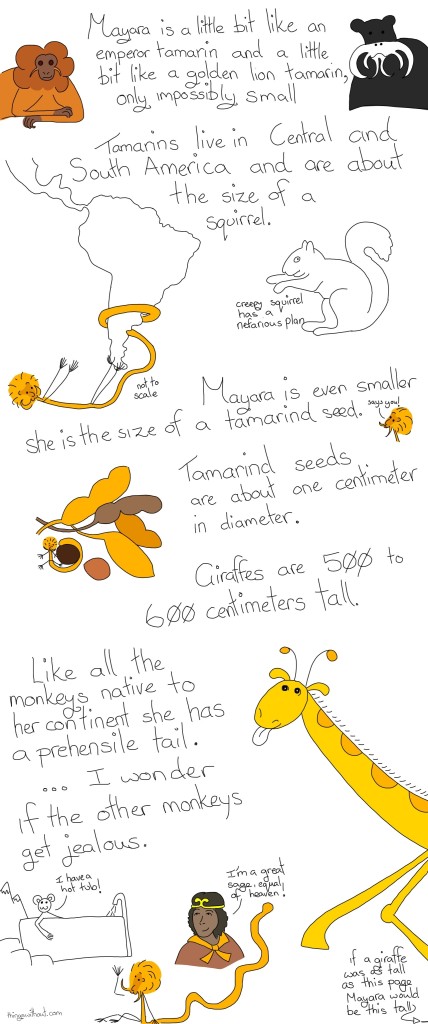 Mayara is a little bit like an
emperor tamarin and a little
bit like a golden lion tamarin,
only impossibly small
Tamarins live in Central and
South America and are about
the size of a
squirrel.
creepy squirrel
has a
nefarious plan
not to
scale
Mayara is even smaller
she is the size of a tamarind seed.
says you!
Tamarind seeds
are about one centimeter
in diameter.
Giraffes are 500 to
600 centimeters tall.
Like all the
monkeys native to
her continent she has
a prehensile tail.
... I wonder
if the other monkeys
get jealous.
I have a
hot tub!
I'm a great
sage, equal
of heaven!
if a giraffe
was as tall
as this page
Mayara would
be this tall
thingswithout.com